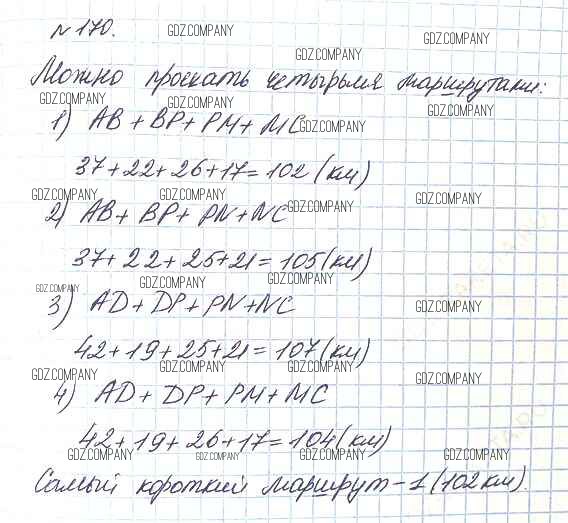 №170.
GDZ.COMPANY
GDZ.COMPANY
GDZ.COMPANY
Можно проехать четырьмя маршрутами:
GDZ.COMPANY
GDZ.COMPANY
GDZ.COMPANY
1) AB + BP + PM + MC
GDZ.COMPANY
37+22+26+17=102 (км)
GDZ.COMPANY
GDZ.COMPANY
GDZ.COMPANY
GDZ.COMPANY
2) AB + BP + PN + NC
37+22+25+21=105 (км)
GDZ.COMPANY
GDZ.COMPANY
GDZ.COMPANY
3) AD + DP + PN + NC
GDZ.COMPANY
42+19+25+21=107 (км)
GDZ.COMPANY
GDZ.COMPANY
GDZ.COMPANY
GDZ.COMPANY
4) AD + DP + PM + MC
42+19+26+17=104 (км)
GDZ.COMPANY
GDZ.COMPANY
GDZ.COMPANY
GDZ.COMPANY
Самый короткий маршрут – 1 (102 км).